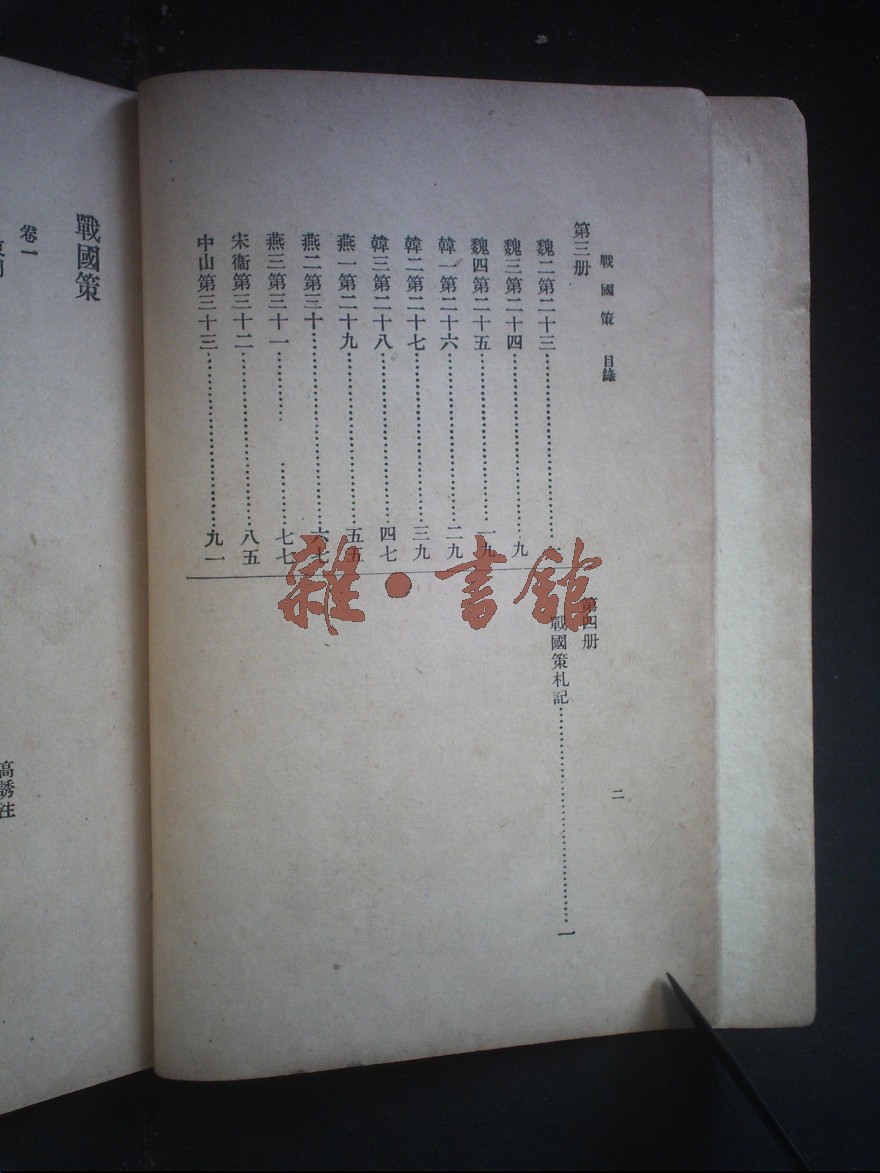 戰國策 目錄
第三册
魏二第二十三
魏三第二十四 九
魏四第二十五 一九
韓一第二十六 二九
韓二第二十七 三九
韓三第二十八 四七
燕一第二十九 五五
燕二第三十 六七
燕三第三十一 七七
宋衞第三十二 八五
中山第三十三 九一
第四册
戰國策札記 一
二
戰國策
卷一
高誘注
雜·書館